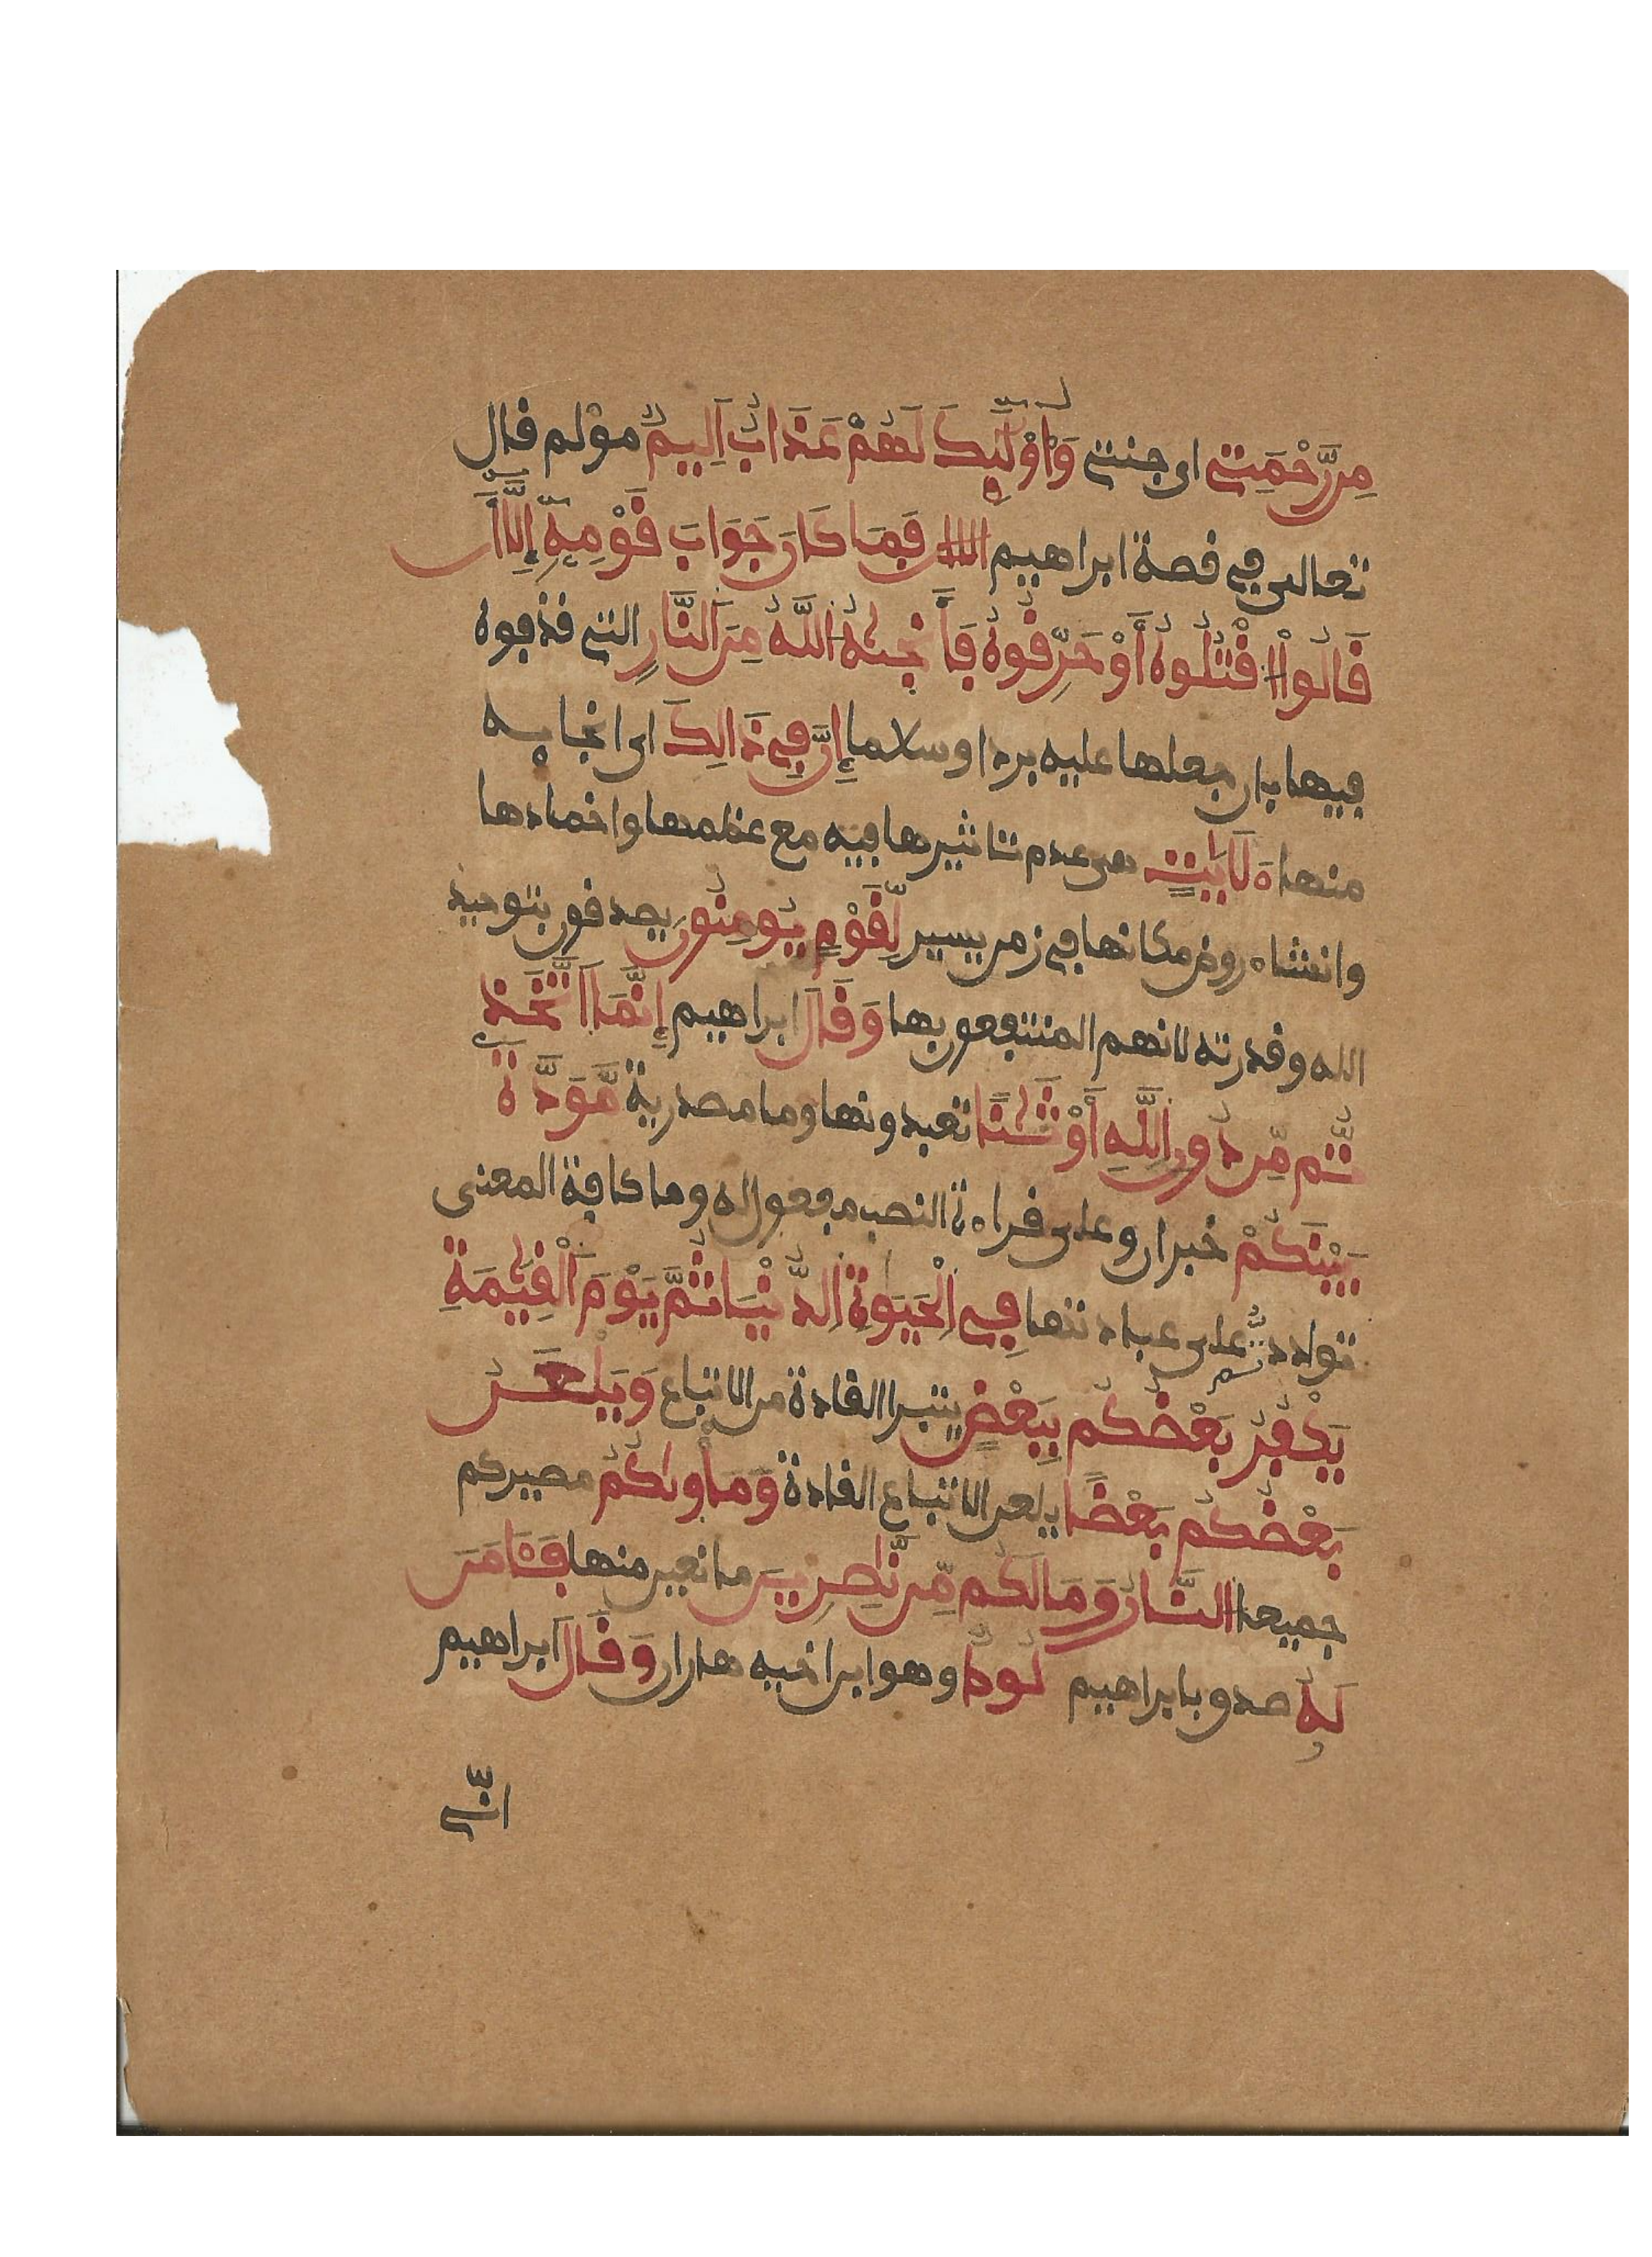 مِن رَّحْمَتِي اى جنتى وَأُوْلَٰٓئِكَ لَهُمْ عَذَابٌ اَلِيمٌ مؤلم قال
تعالى في قصة ابراهيم فَمَا كَانَ جَوَابَ قَوْمِهِۦٓ إِلَّآ أَن
قَالُوا۟ اقْتُلُوهُ أَوْ حَرِّقُوهُ فَأَنجَىٰهُ اللَّهُ مِنَ النَّارِ التى قذفوه
فيها بان جعلها عليه بردا وسلاما إِنَّ فِي ذَالِكَ اى انجايه
منها ءَلَأَيَٰتٍ هى عدم تاثيرها فيه مع عظمها واخمادها
وانشاء روض مكانها في زمن يسير لِّقَوْمٍ يُومِنُونَ يصدقون بتوحيد
الله وقدرته لانهم المنتفعون بها وَقَالَ ابراهيم إِنَّمَا اَتَّخَذ
تُّم مِّن دُونِ اللَّهِ أَوْثَٰنًا تعبدونها وما مصدرية مَّوَدَّةَ
بَيْنِكُمْ خبر ان وعلى قراءة النصب مفعول له وما كافة المعنى
تواددتم على عبادتها فِي الْحَيَوٰةِ الدُّنْيَا ثُمَّ يَوْمَ الْقِيَٰمَةِ
يَكْفُرُ بَعْضُكُم بِبَعْضٍ يتبرا القادة من الاتباع وَيَلْعَنُ
بَعْضُكُم بَعْضًا يلعن الاتباع القادة وَمَأْوَىٰكُمُ مصيركم
جميعا النَّارُ وَمَا لَكُم مِّن نَّٰصِرِينَ مانعين منها فَـَٔامَنَ
لَهُ صدق بابراهيم لُوطٌ وهو ابن اخيه هاران وَقَالَ ابراهيم
انّى